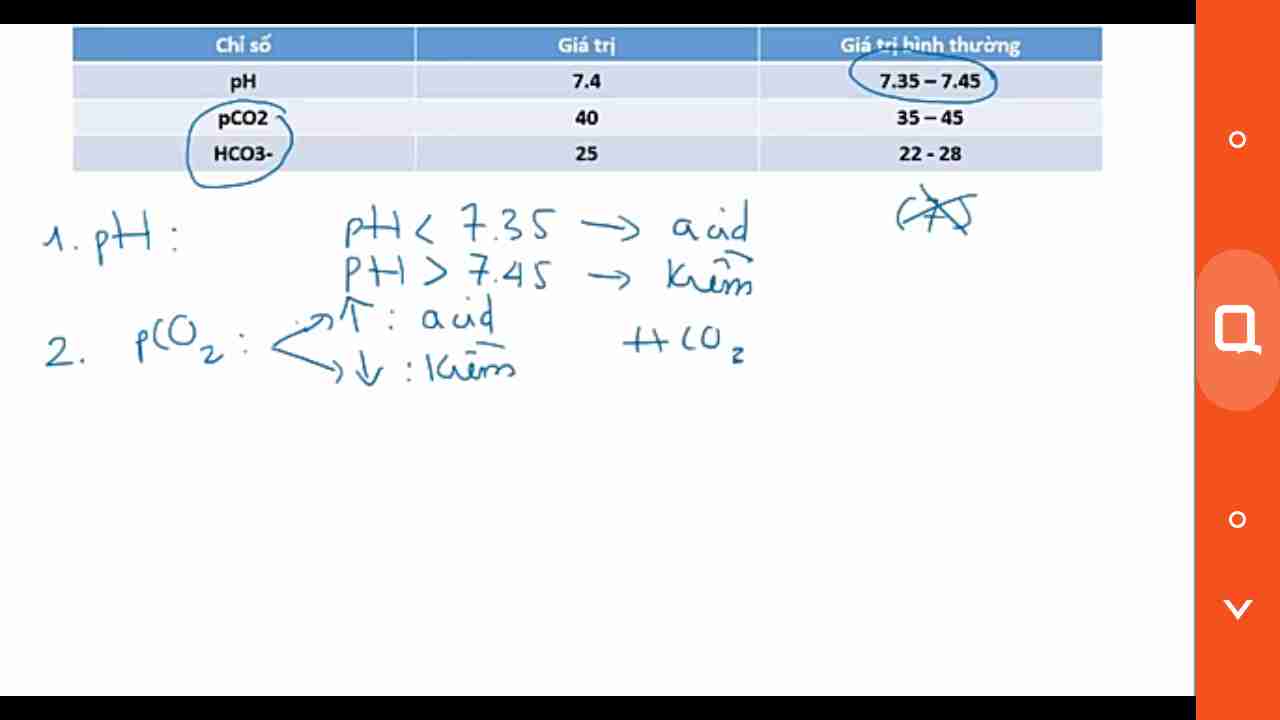 Chỉ số Giá trị Giá trị bình thường
pH 7.4 7.35 – 7.45
pCO2 40 35 – 45
HCO3- 25 22 - 28
1. pH : pH < 7.35 → acid (7)
pH > 7.45 → kiềm
2. pCO₂ : ↑ : acid HCO₂
↓ : kiềm